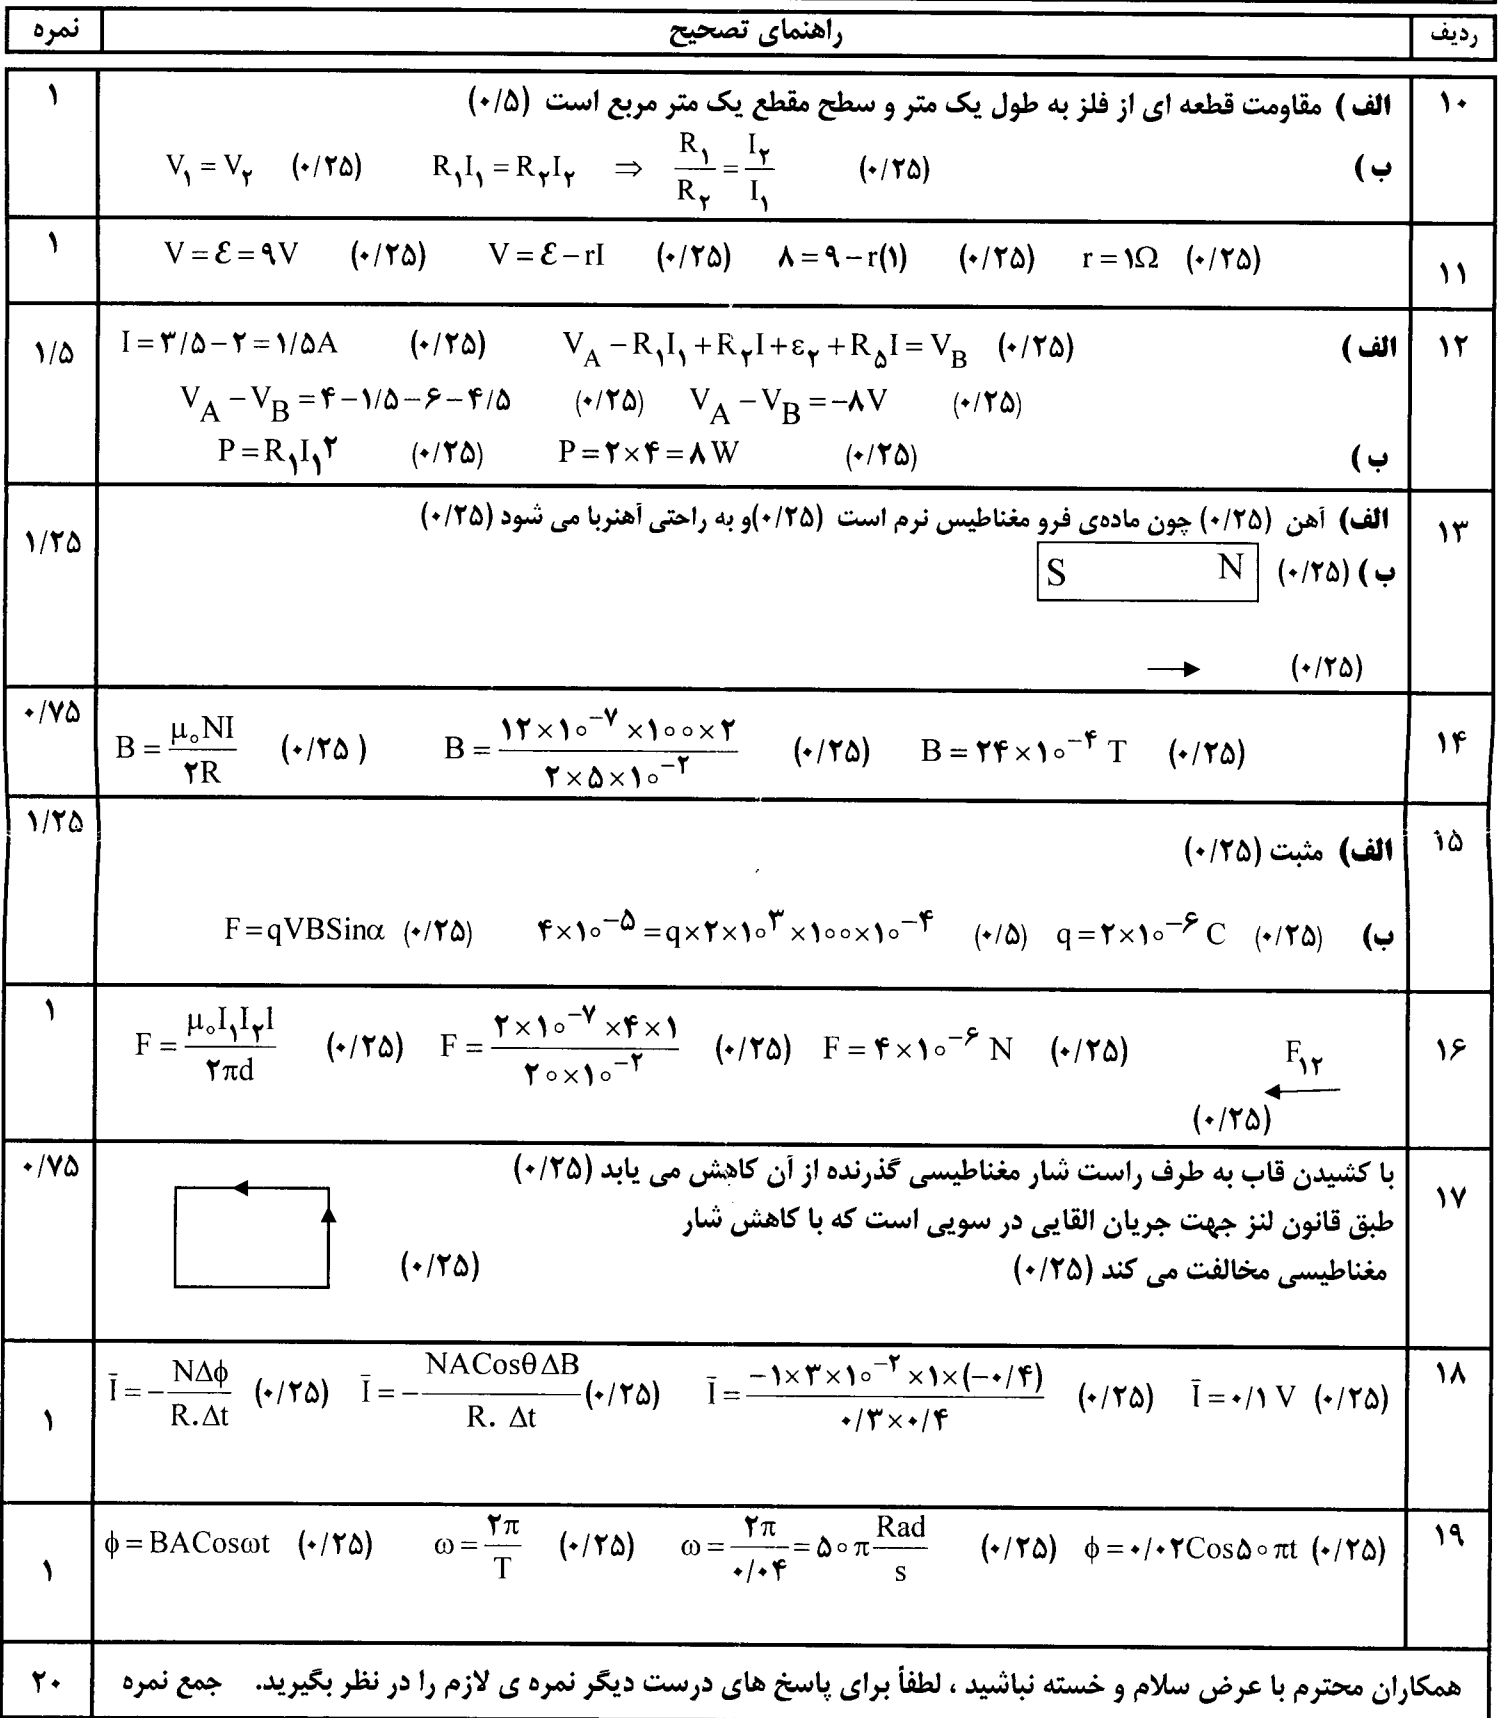 ردیف راهنمای تصحیح نمره
۱۰ الف ) مقاومت قطعه ای از فلز به طول یک متر و سطح مقطع یک متر مربع است (۰/۵) ۱
ب ) V₁ = V₂ (۰/۲۵) R₁I₁ = R₂I₂ ⇒ R₁/R₂ = I₂/I₁ (۰/۲۵)
۱۱ V = ε = ۹V (۰/۲۵) V = ε − rI (۰/۲۵) ۸ = ۹ − r(۱) (۰/۲۵) r = ۱Ω (۰/۲۵) ۱
۱۲ الف ) I = ۳/۵ − ۲ = ۱/۵A (۰/۲۵) V_A − R₁I₁ + R₂I + ε₂ + R₅I = V_B (۰/۲۵) ۱/۵
V_A − V_B = ۴ − ۱/۵ − ۶ − ۴/۵ (۰/۲۵) V_A − V_B = −۸V (۰/۲۵)
ب ) P = R₁I₁² (۰/۲۵) P = ۲×۴ = ۸ W (۰/۲۵)
۱۳ الف) آهن (۰/۲۵) چون ماده‌ی فرو مغناطیس نرم است (۰/۲۵)و به راحتی آهنربا می شود (۰/۲۵) ۱/۲۵
ب ) (۰/۲۵) S N
(۰/۲۵) →
۱۴ B = μ₀NI/۲R (۰/۲۵ ) B = ۱۲×۱۰⁻⁷×۱۰۰×۲ / ۲×۵×۱۰⁻² (۰/۲۵) B = ۲۴×۱۰⁻⁴ T (۰/۲۵) ۰/۷۵
۱۵ الف) مثبت (۰/۲۵) ۱/۲۵
ب) F = qVBSinα (۰/۲۵) ۴×۱۰⁻⁵ = q×۲×۱۰³×۱۰۰×۱۰⁻⁴ (۰/۵) q = ۲×۱۰⁻⁶ C (۰/۲۵)
۱۶ F = μ₀I₁I₂l/۲πd (۰/۲۵) F = ۲×۱۰⁻⁷×۴×۱ / ۲۰×۱۰⁻² (۰/۲۵) F = ۴×۱۰⁻⁶ N (۰/۲۵) F₁₂ ← ۱
(۰/۲۵)
۱۷ با کشیدن قاب به طرف راست شار مغناطیسی گذرنده از آن کاهش می یابد (۰/۲۵) ۰/۷۵
طبق قانون لنز جهت جریان القایی در سویی است که با کاهش شار
مغناطیسی مخالفت می کند (۰/۲۵) (۰/۲۵)
۱۸ Ī = −NΔφ/R.Δt (۰/۲۵) Ī = −NACosθΔB/R. Δt (۰/۲۵) Ī = −۱×۳×۱۰⁻²×۱×(−۰/۴) / ۰/۳×۰/۴ (۰/۲۵) Ī = ۰/۱ V (۰/۲۵) ۱
۱۹ φ = BACosωt (۰/۲۵) ω = ۲π/T (۰/۲۵) ω = ۲π/۰/۰۴ = ۵۰π Rad/s (۰/۲۵) φ = ۰/۰۲Cos۵۰πt (۰/۲۵) ۱
همکاران محترم با عرض سلام و خسته نباشید ، لطفاً برای پاسخ های درست دیگر نمره ی لازم را در نظر بگیرید. جمع نمره ۲۰